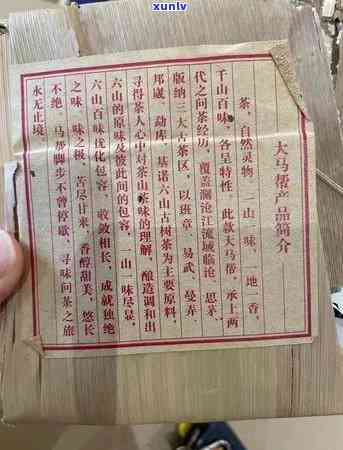 xunlv
大马帮产品简介
茶，自然灵物，一山一味，一地一香，
千山百味，各呈特性。此款大马帮，承上两
代之问茶经历，覆盖澜沧江流域临沧、思茅、
版纳三大古茶区，以班章、易武、曼弄、
邦崴、勐库、基诺六山古树茶为主要原料，
寻得茶人心中对茶山茶味的理解，酿造调和出
六山的原味及彼此间的包容，一山一味尽显，
六山百味优化包容、收敛相长，成就独绝
之味、味之极。苦尽甘来，香醇甜美，悠长
不绝。马帮脚步不曾停歇、寻味问茶之旅
永无止境